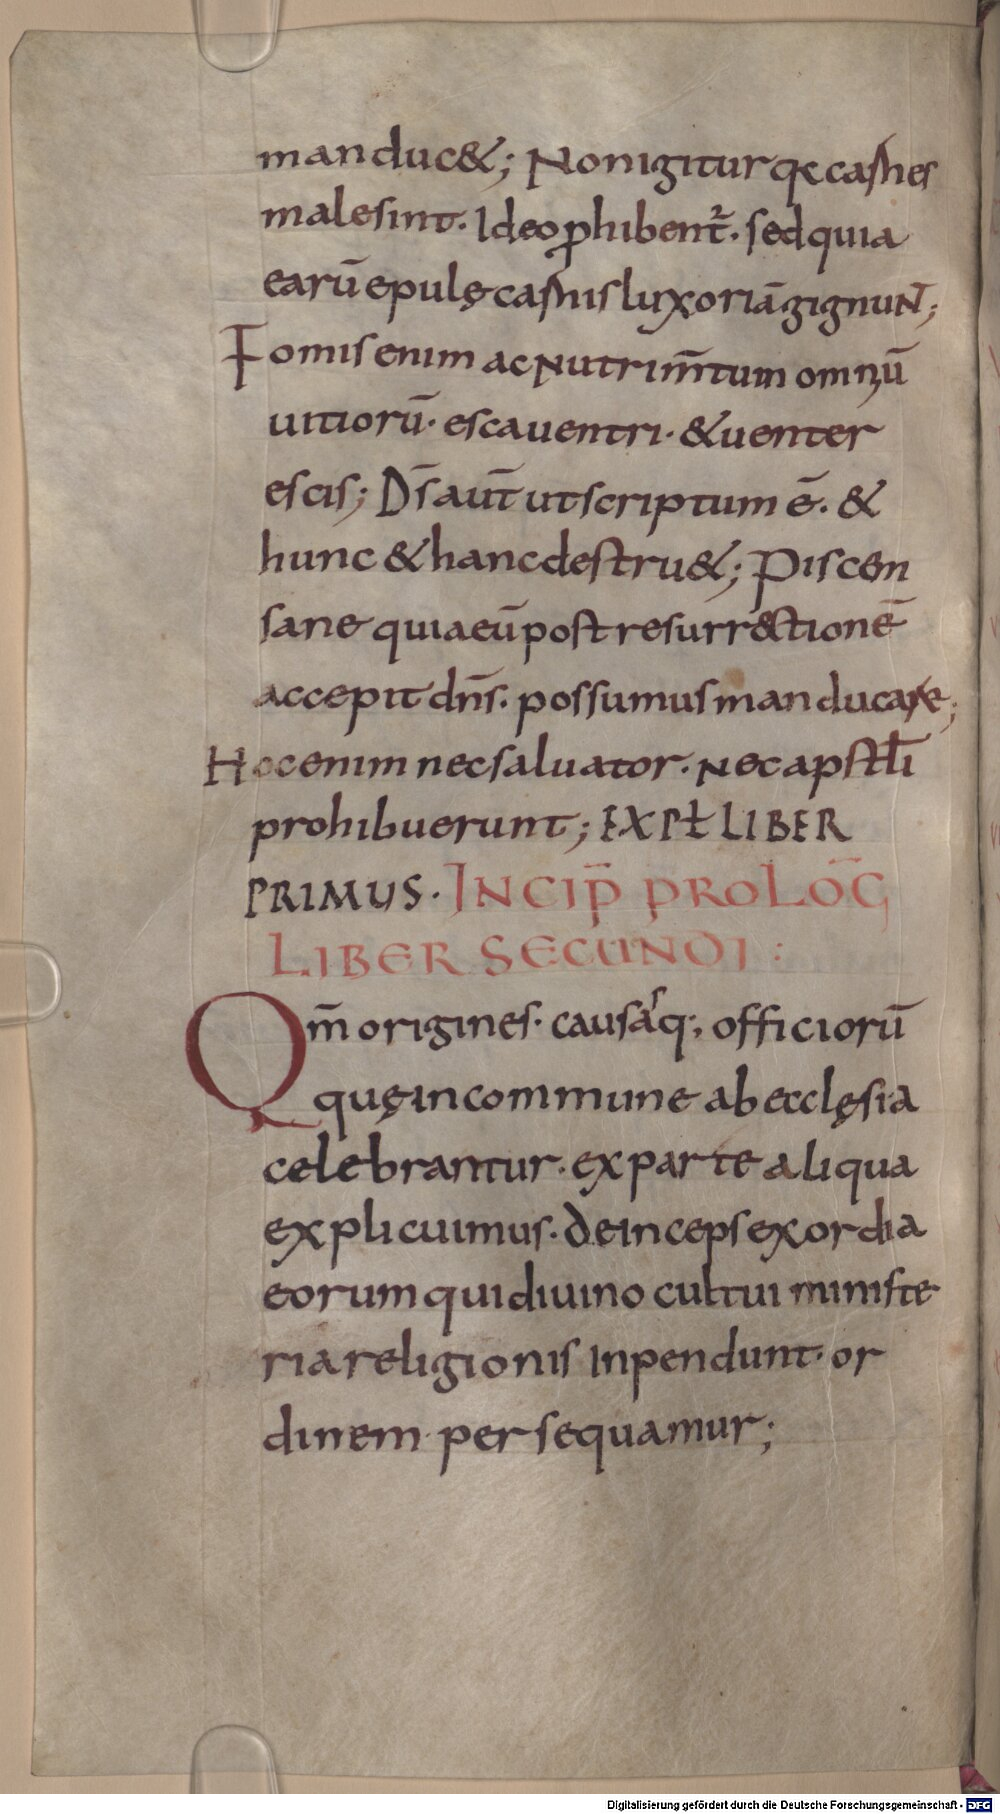 manduc&; Non igitur qđ carnes
male sint. Ideo ꝓhibent᷑. sed quia
earū epulę carnis luxoriā gignuN̄;
Fomis enim ac nutrim̄tum omniū
uitiorū. esca uentri. & uenter
escis; Dn̄s aut̄ ut scriptum ē. &
hunc & hanc destru&; Piscem
sane quia eū post resurr&tionē
accepit dn̄s. possumus manducare;
Hoc enim nec saluator. nec apostłi
prohibuerunt; EXPŁ LIBER
PRIMUS. INCIP̄ PROLOḠ
LIBER SECUNDI:
Qm̄ origines. causasq; officiorū
quę in commune ab ecclęsia
celebrantur. ex parte aliqua
explicuimus. deinceps exordia
eorum qui diuino cultui ministe
ria religionis inpendunt. or
dinem persequamur;
Digitalisierung gefördert durch die Deutsche Forschungsgemeinschaft - DFG